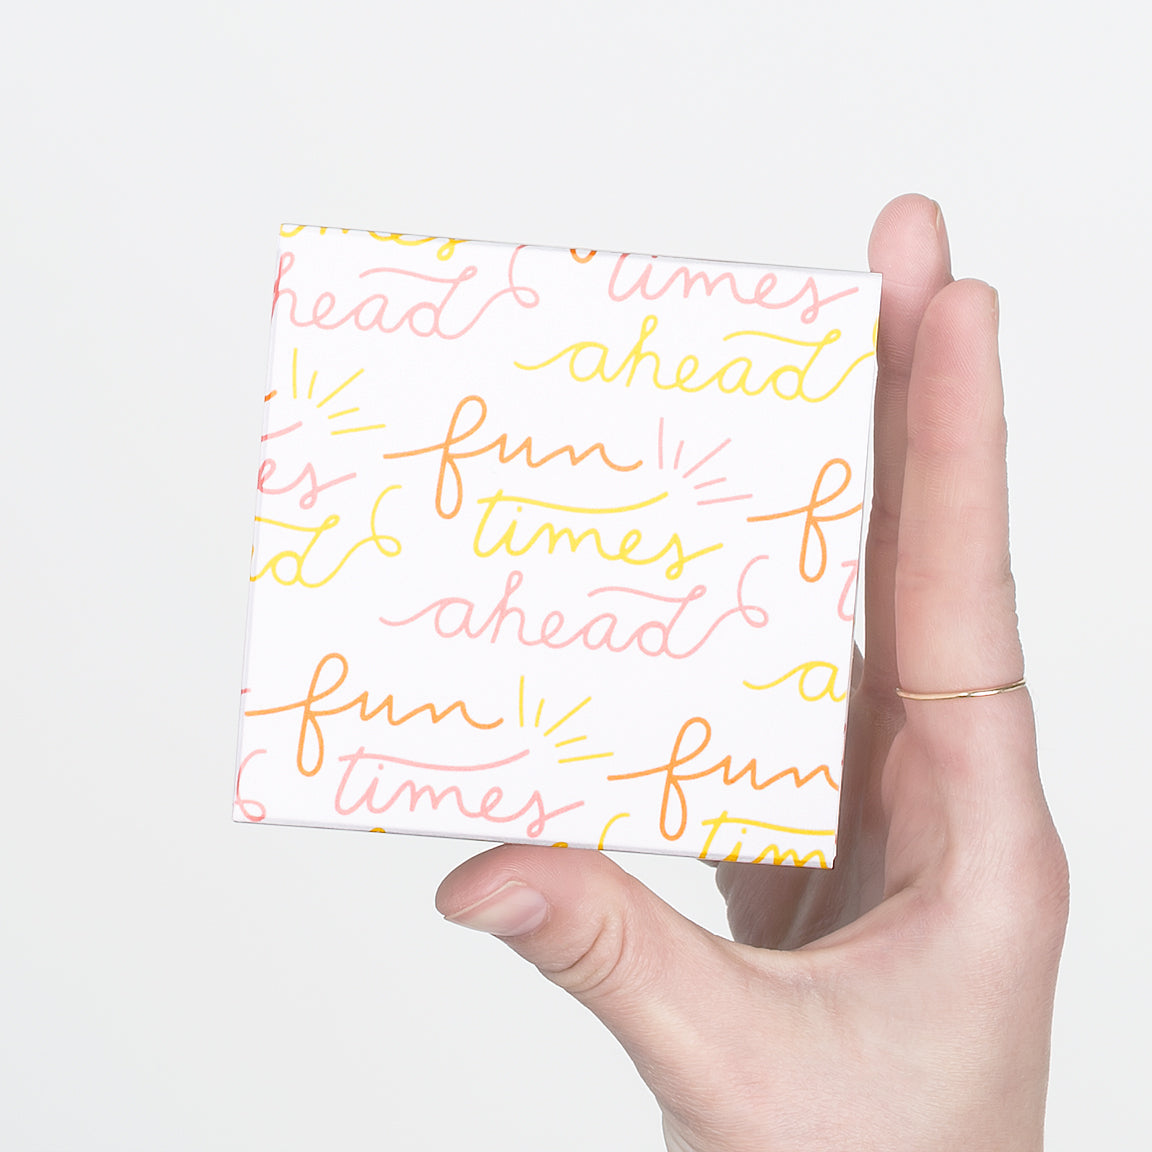 times
ahead
ahead
fun
times
ahead
fun
times
fun